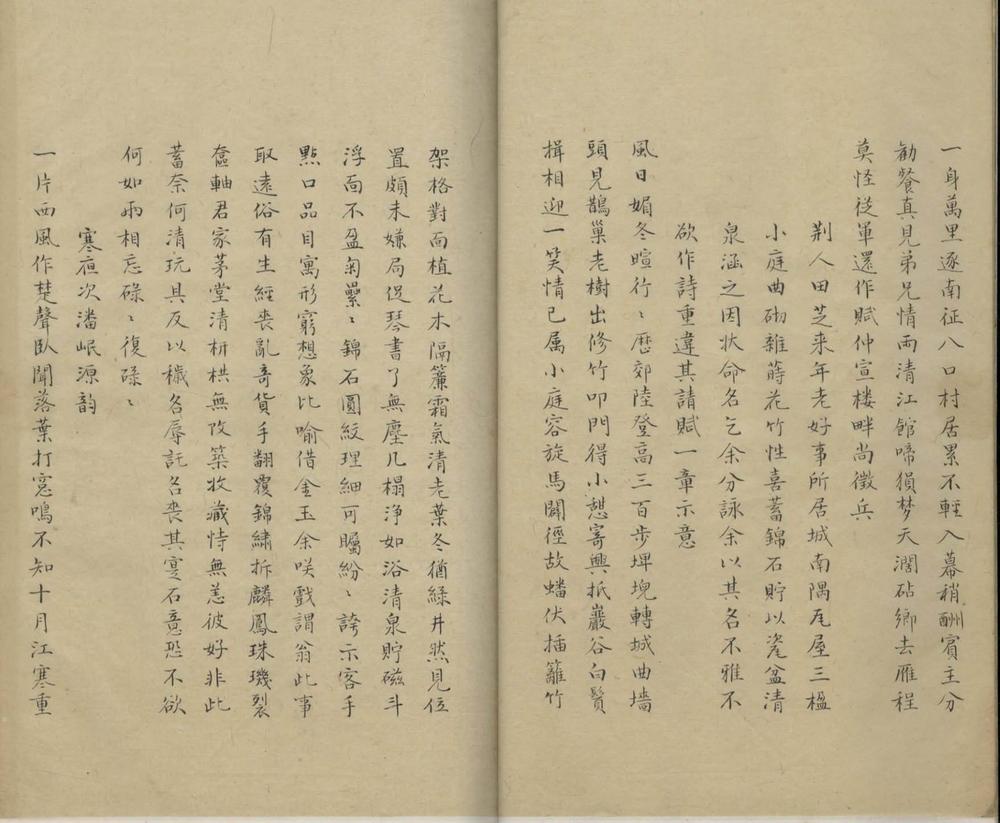 一身萬里逐南征八口村居累不輕入幕稍酬賓主分
勸餐真見弟兄情雨清江館啼猿梦天濶砧鄉去雁程
莫怪従軍還作賦仲宣楼畔尚徵兵
荆人田芝来年老好事所居城南隅瓦屋三楹
小庭曲砌雜蒔花竹性喜蓄錦石貯以瓷盆清
泉涵之因状命名乞余分詠余以其名不雅不
欲作詩重違其請賦一章示意
風日媚冬暄行〻歴郊陸登高三百步埤堄轉城曲墻
頭見鵲巢老樹出修竹叩門得小憇寄興抵巖谷白鬢
揖相迎一笑情已属小庭容旋馬闢徑故蟠伏插籬竹
架格對面植花木隔簾霜氣清老葉冬猶緑井然見位
置頗未嫌局促琴書了無塵几榻浄如浴清泉貯磁斗
浮面不盈匊纍〻錦石圓紋理細可矚紛〻誇示客手
點口品目寓形窮想象比喻借金玉余咲戲謂翁此事
取遠俗有生經喪亂奇貨手翻覆錦繡拆麟鳳珠璣裂
奩軸君家茅堂清枅栱無改築收藏恃無恙彼好非此
蓄奈何清玩具反以穢名辱託名喪其寔石意恐不欲
何如兩相忘碌〻復碌〻
寒夜次潘岷源韵
一片西風作楚聲臥聞落葉打窓鳴不知十月江寒重